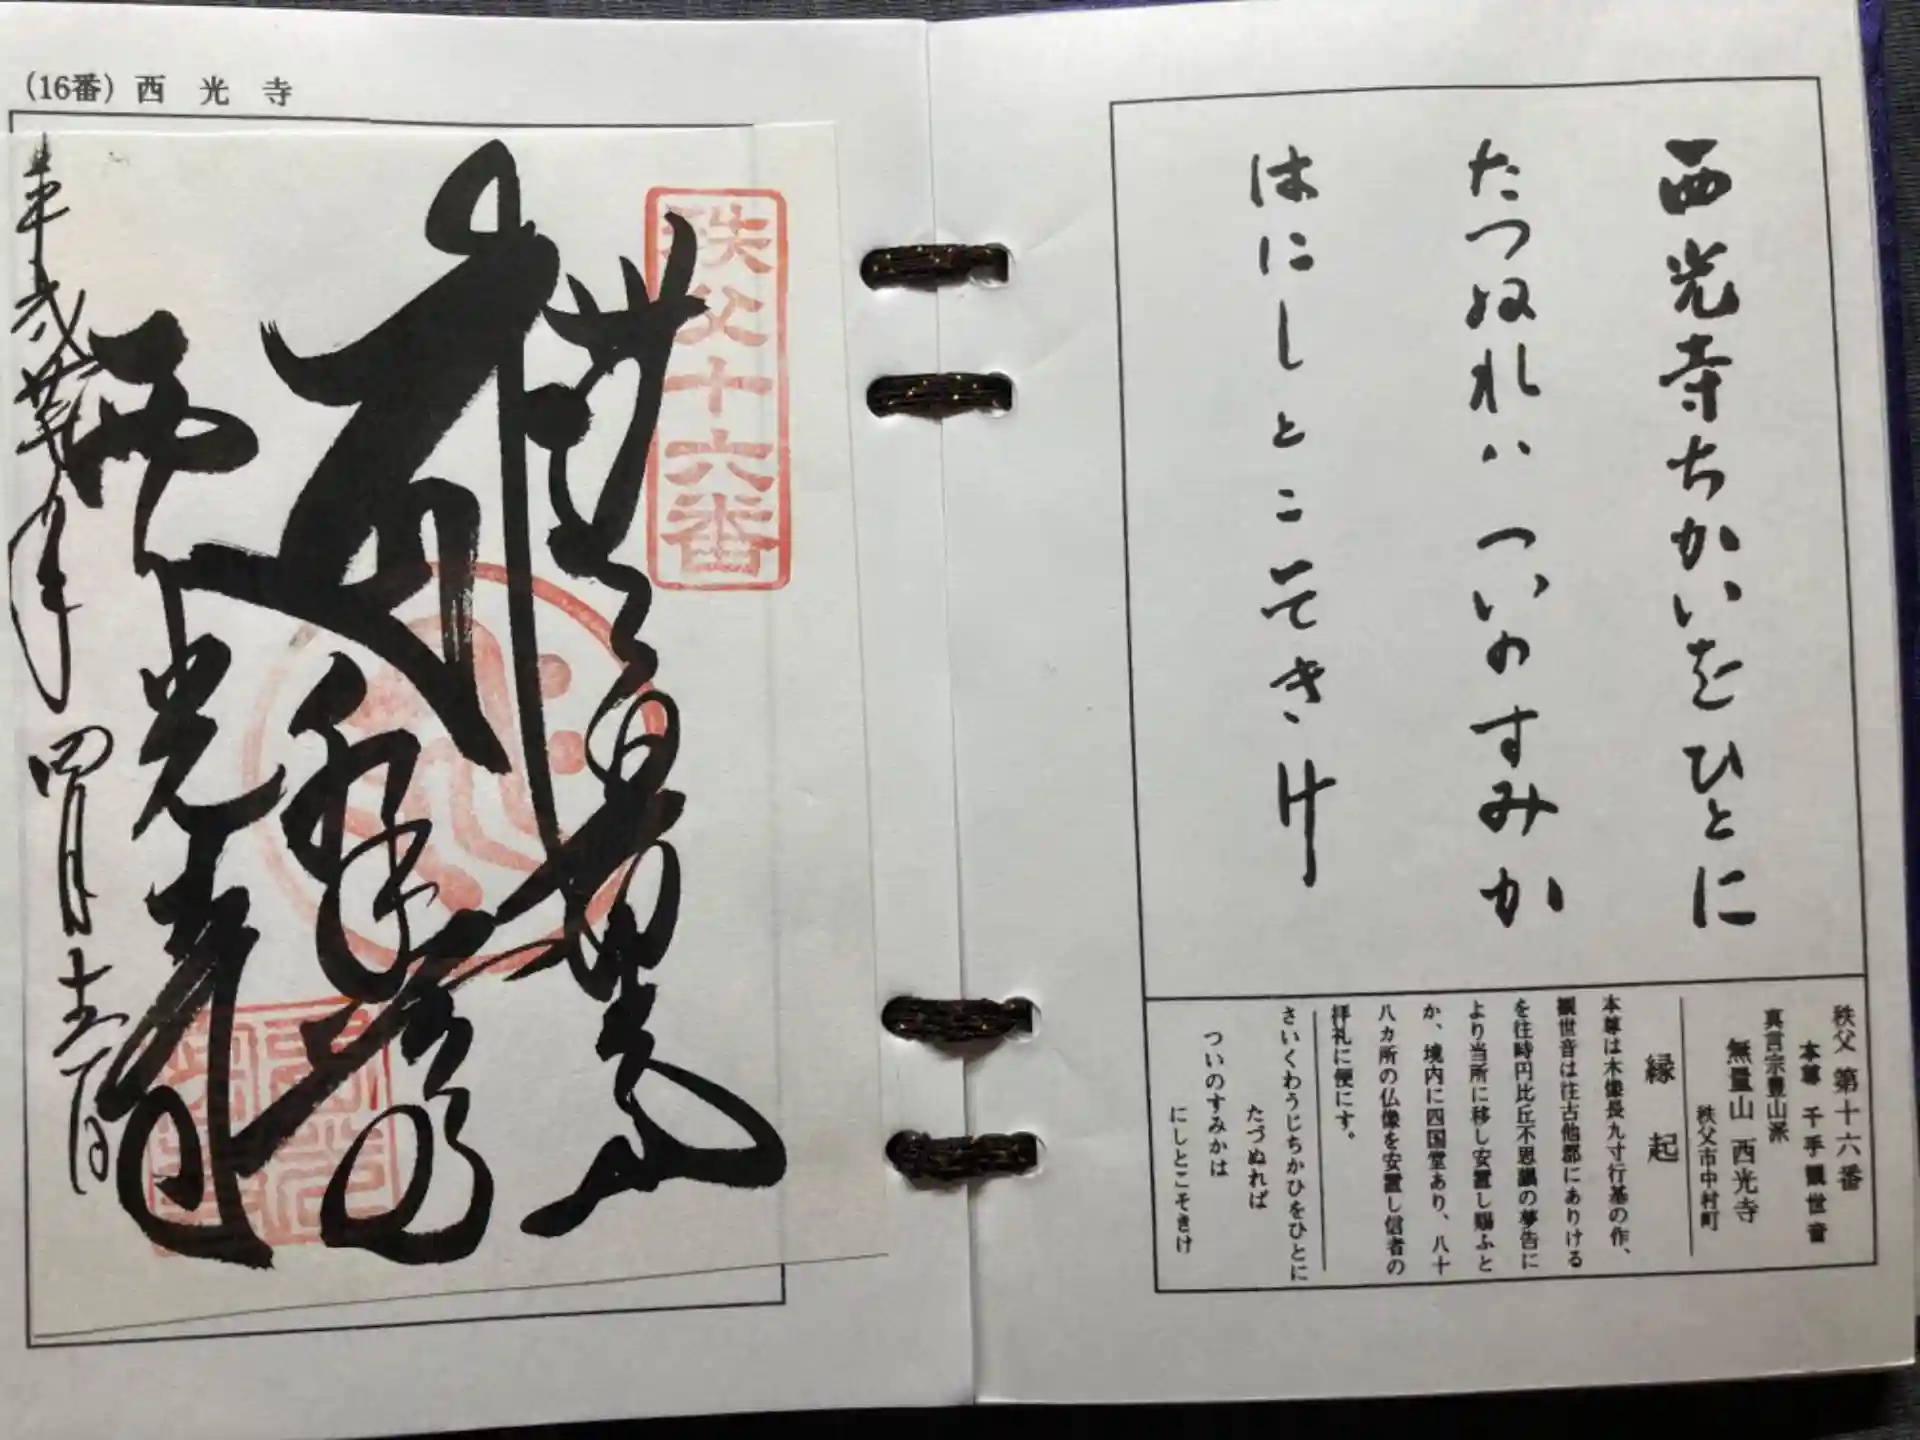 (16番) 西光寺
秩父十六番
無量山
西光寺
四月十二日
西光寺ちかいをひとに
たつぬれハついのすみか
はにしとこそきけ
秩父 第十六番
本尊 千手観世音
真言宗豊山派
無量山 西光寺
秩父市中村町
縁起
本尊は木像長九寸行基の作、
観世音は往古他郡にありける
を往時円比丘不思議の夢告に
より当所に移し安置し賜ふと
か、境内に四国堂あり、八十
八カ所の仏像を安置し信者の
拝礼に便にす。
さいくわうじちかひをひとに
たづぬれば
ついのすみかは
にしとこそきけ